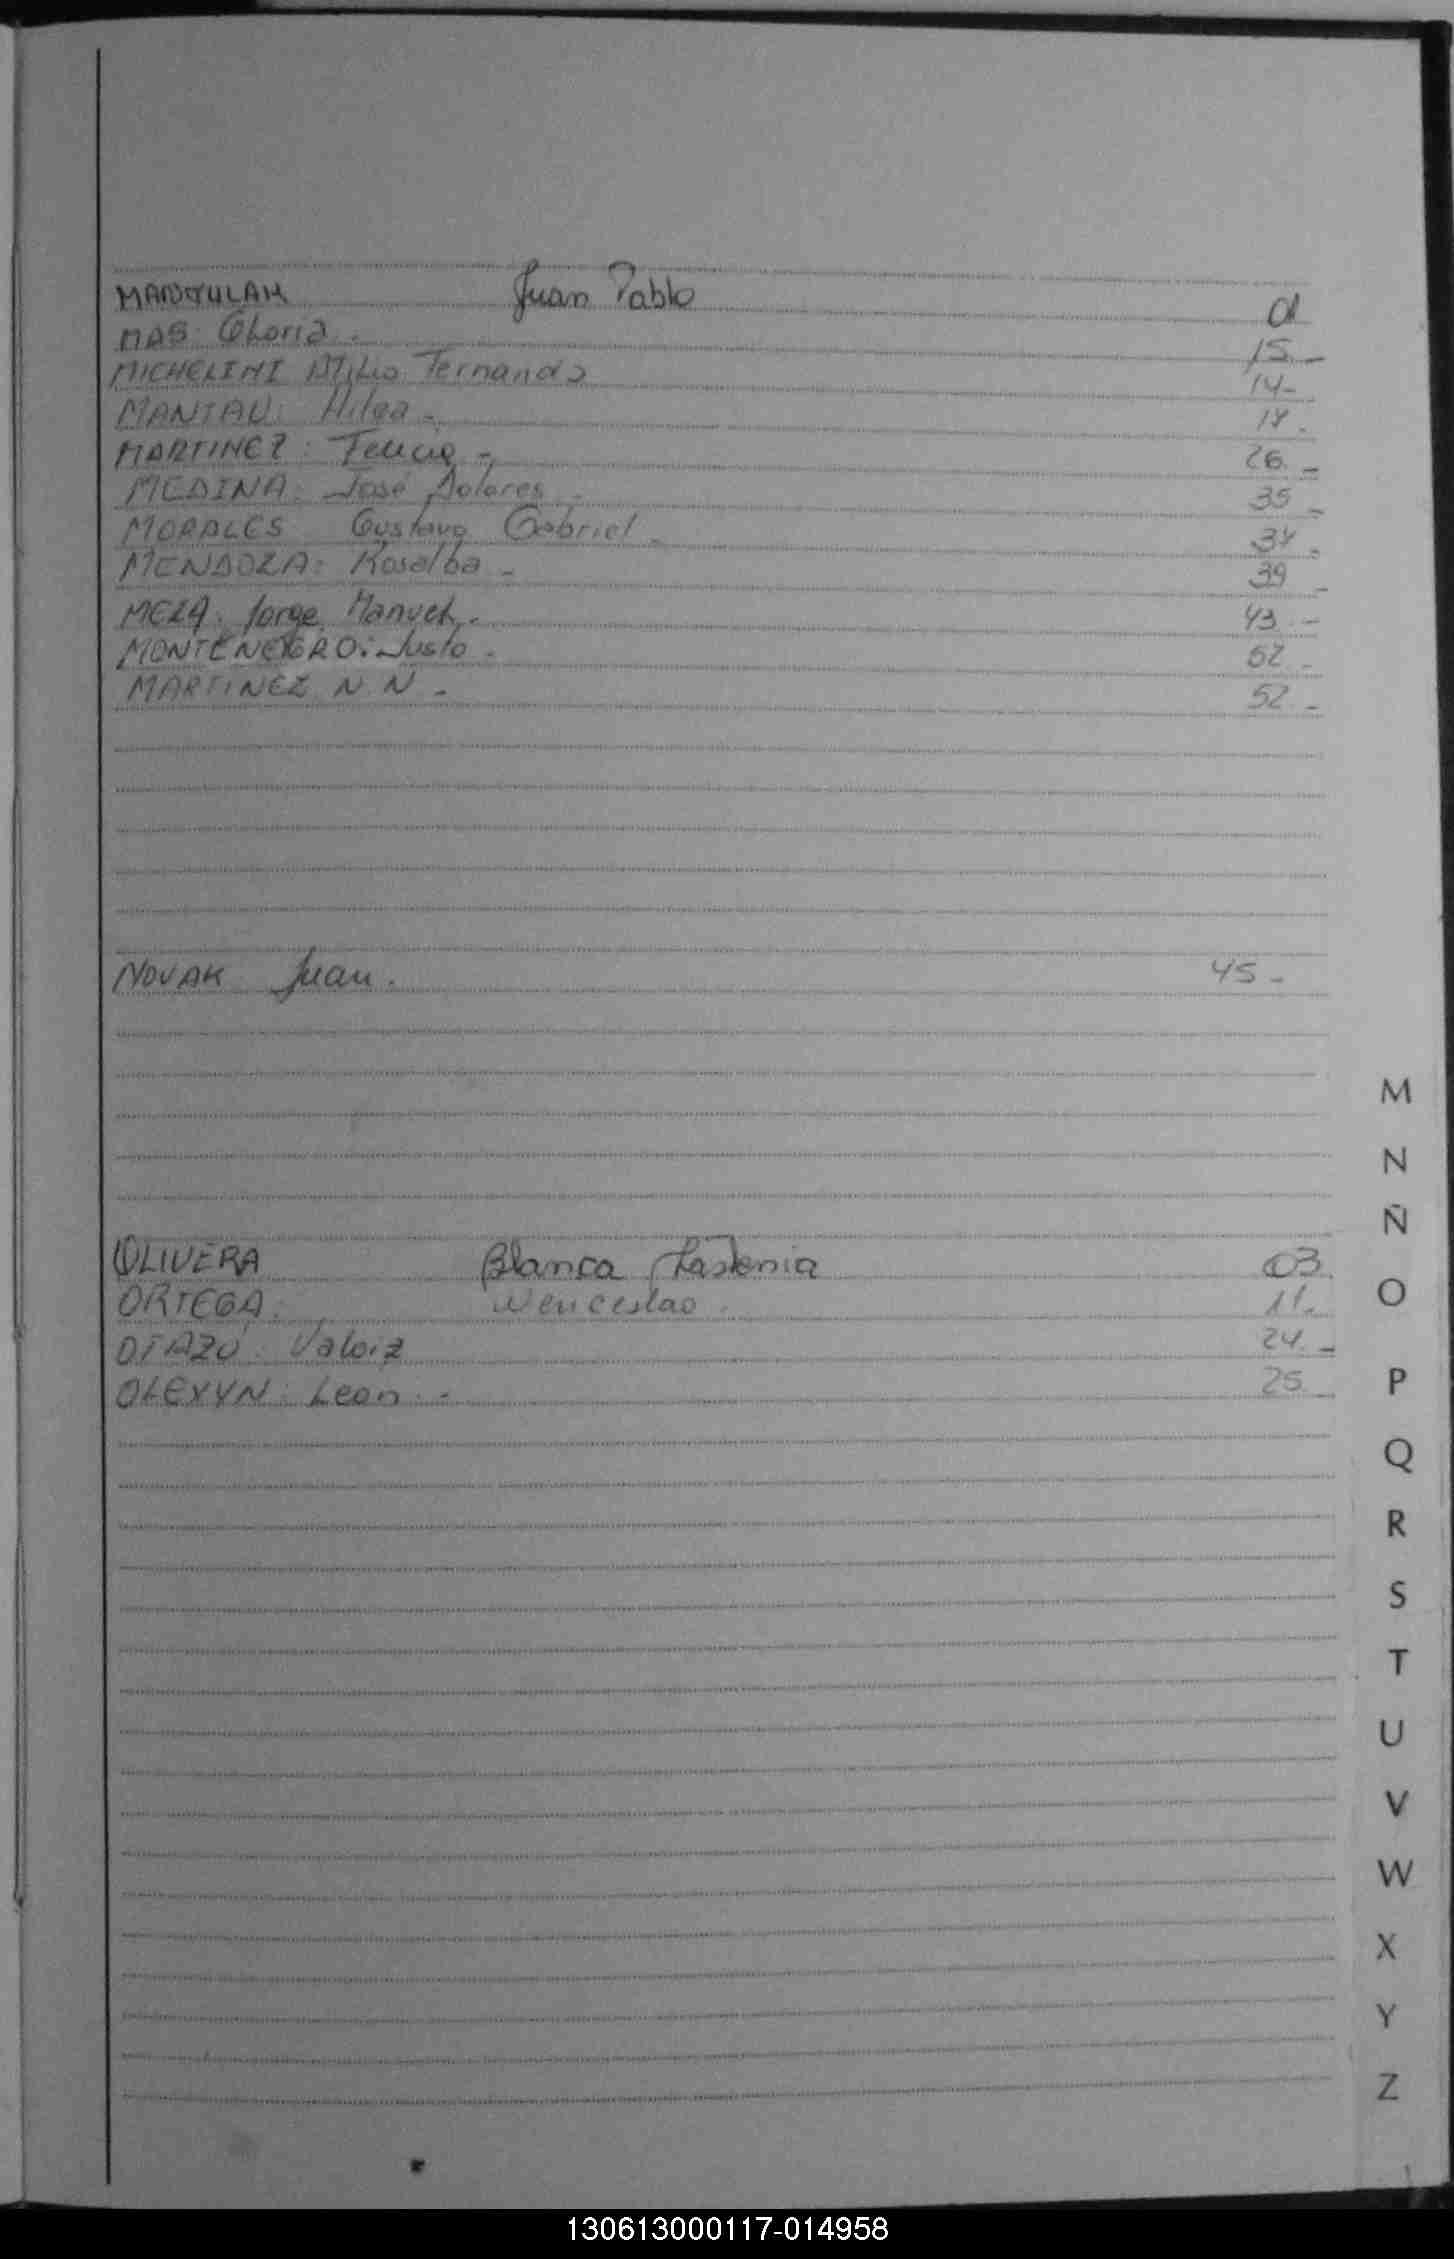 MANTULAK Juan Pablo 01
MAS: Gloria. 15.-
MICHELINI Atilio Fernando 14-
MANTAU: Hilda - 17.
MARTINEZ: Felicia - 26.-
MEDINA: José Dolores - 35-
MORALES Gustavo Gabriel - 37-
MENDOZA: Rosalba - 39-
MEZA: Jorge Manuel.- 43.-
MONTENEGRO: Justo - 52.-
MARTINEZ N N - 52.-
NOVAK Juan. 45-
OLIVERA Blanca Lastenia 03
ORTEGA: Wenceslao. 11.
OTAZÚ: Valoiz 24.-
OLEXYN: León.- 25.-
M
N
Ñ
O
P
Q
R
S
T
U
V
W
X
Y
Z
130613000117-014958